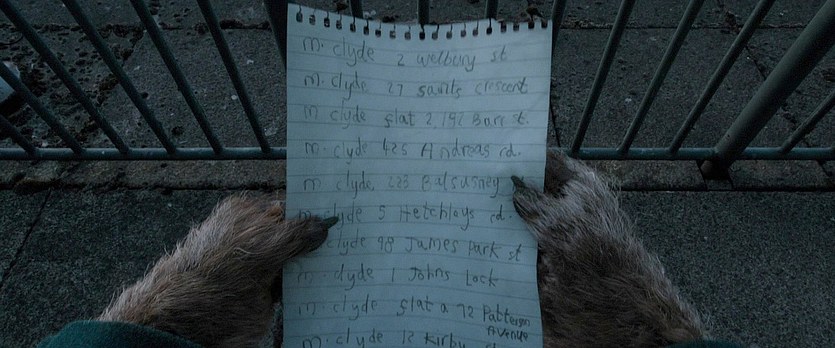 M. Clyde 2 Welbury St
M. Clyde 27 Saints Crescent
M Clyde flat 2, 192 Barr St.
M. Clyde 425 Andreas rd.
M Clyde. 223
M. Clyde 5 Hetchlays rd.
Clyde 98 James Park St
M. Clyde 1 Johns Lock
M. Clyde flat a 72 Patterson
Avenue
M. Clyde 12 Kirby